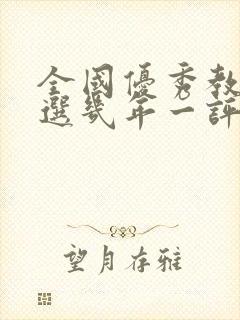 全國優秀教
選幾年一評
望月存雅